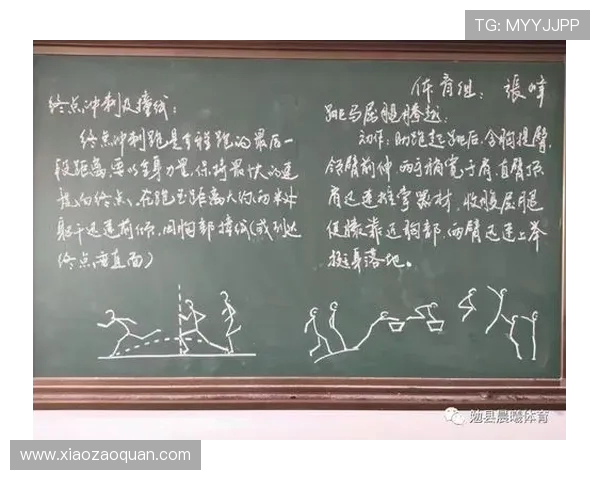 TG: MYYJJPP
体育组：張峰
终点冲刺及撞线：
终点冲刺跑是全程跑的最后一
段距离，要以全身力量，保持最大的速
度向终点、在跑至距离大约两米处
躯干迅速前倾，用胸部撞线（或到达
终点垂直面）
跳马屈腿腾越：
动作：助跑起跳后，含胸提臂，
领臂前伸，两手稍宽于肩直臂顶
肩迅速推掌器材，收腹屈腿
使膝靠近胸部，两臂迅速上举
挺身落地。
勉县晨曦体育
www.xiaozaoquan.com